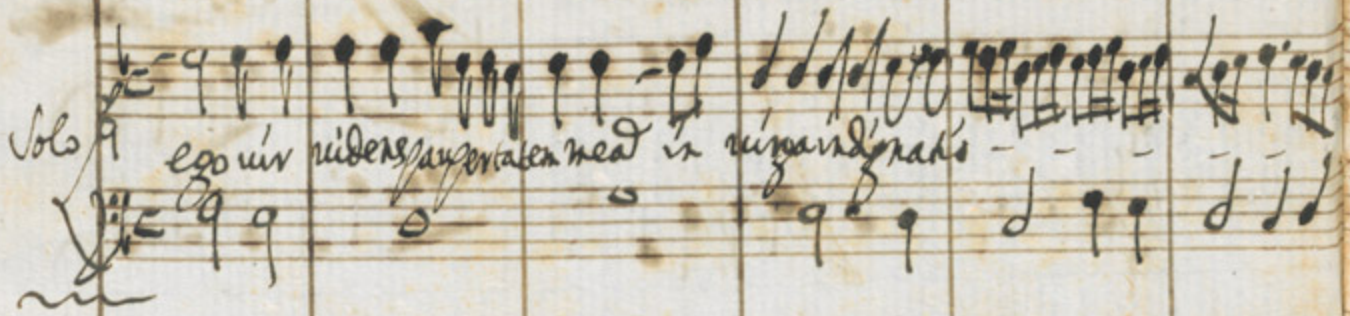 Solo
ego vir videns paupertatem meã in virga indignatis